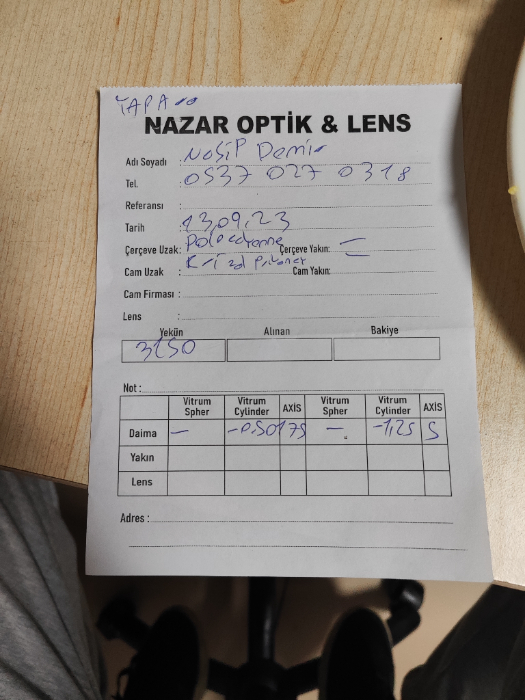 TAPA
NAZAR OPTİK & LENS
Adı Soyadı : Nasip Demir
Tel. : 0537 027 0318
Referansı :
Tarih : 13.09.23
Çerçeve Uzak: Çerçeve Yakın:
Cam Uzak : Cam Yakın:
Cam Firması :
Lens :
Yekün Alınan Bakiye
3150
Not :
Vitrum Spher Vitrum Cylinder AXİS Vitrum Spher Vitrum Cylinder AXİS
Daima — -0,50 175 — -1,25 5
Yakın
Lens
Adres :